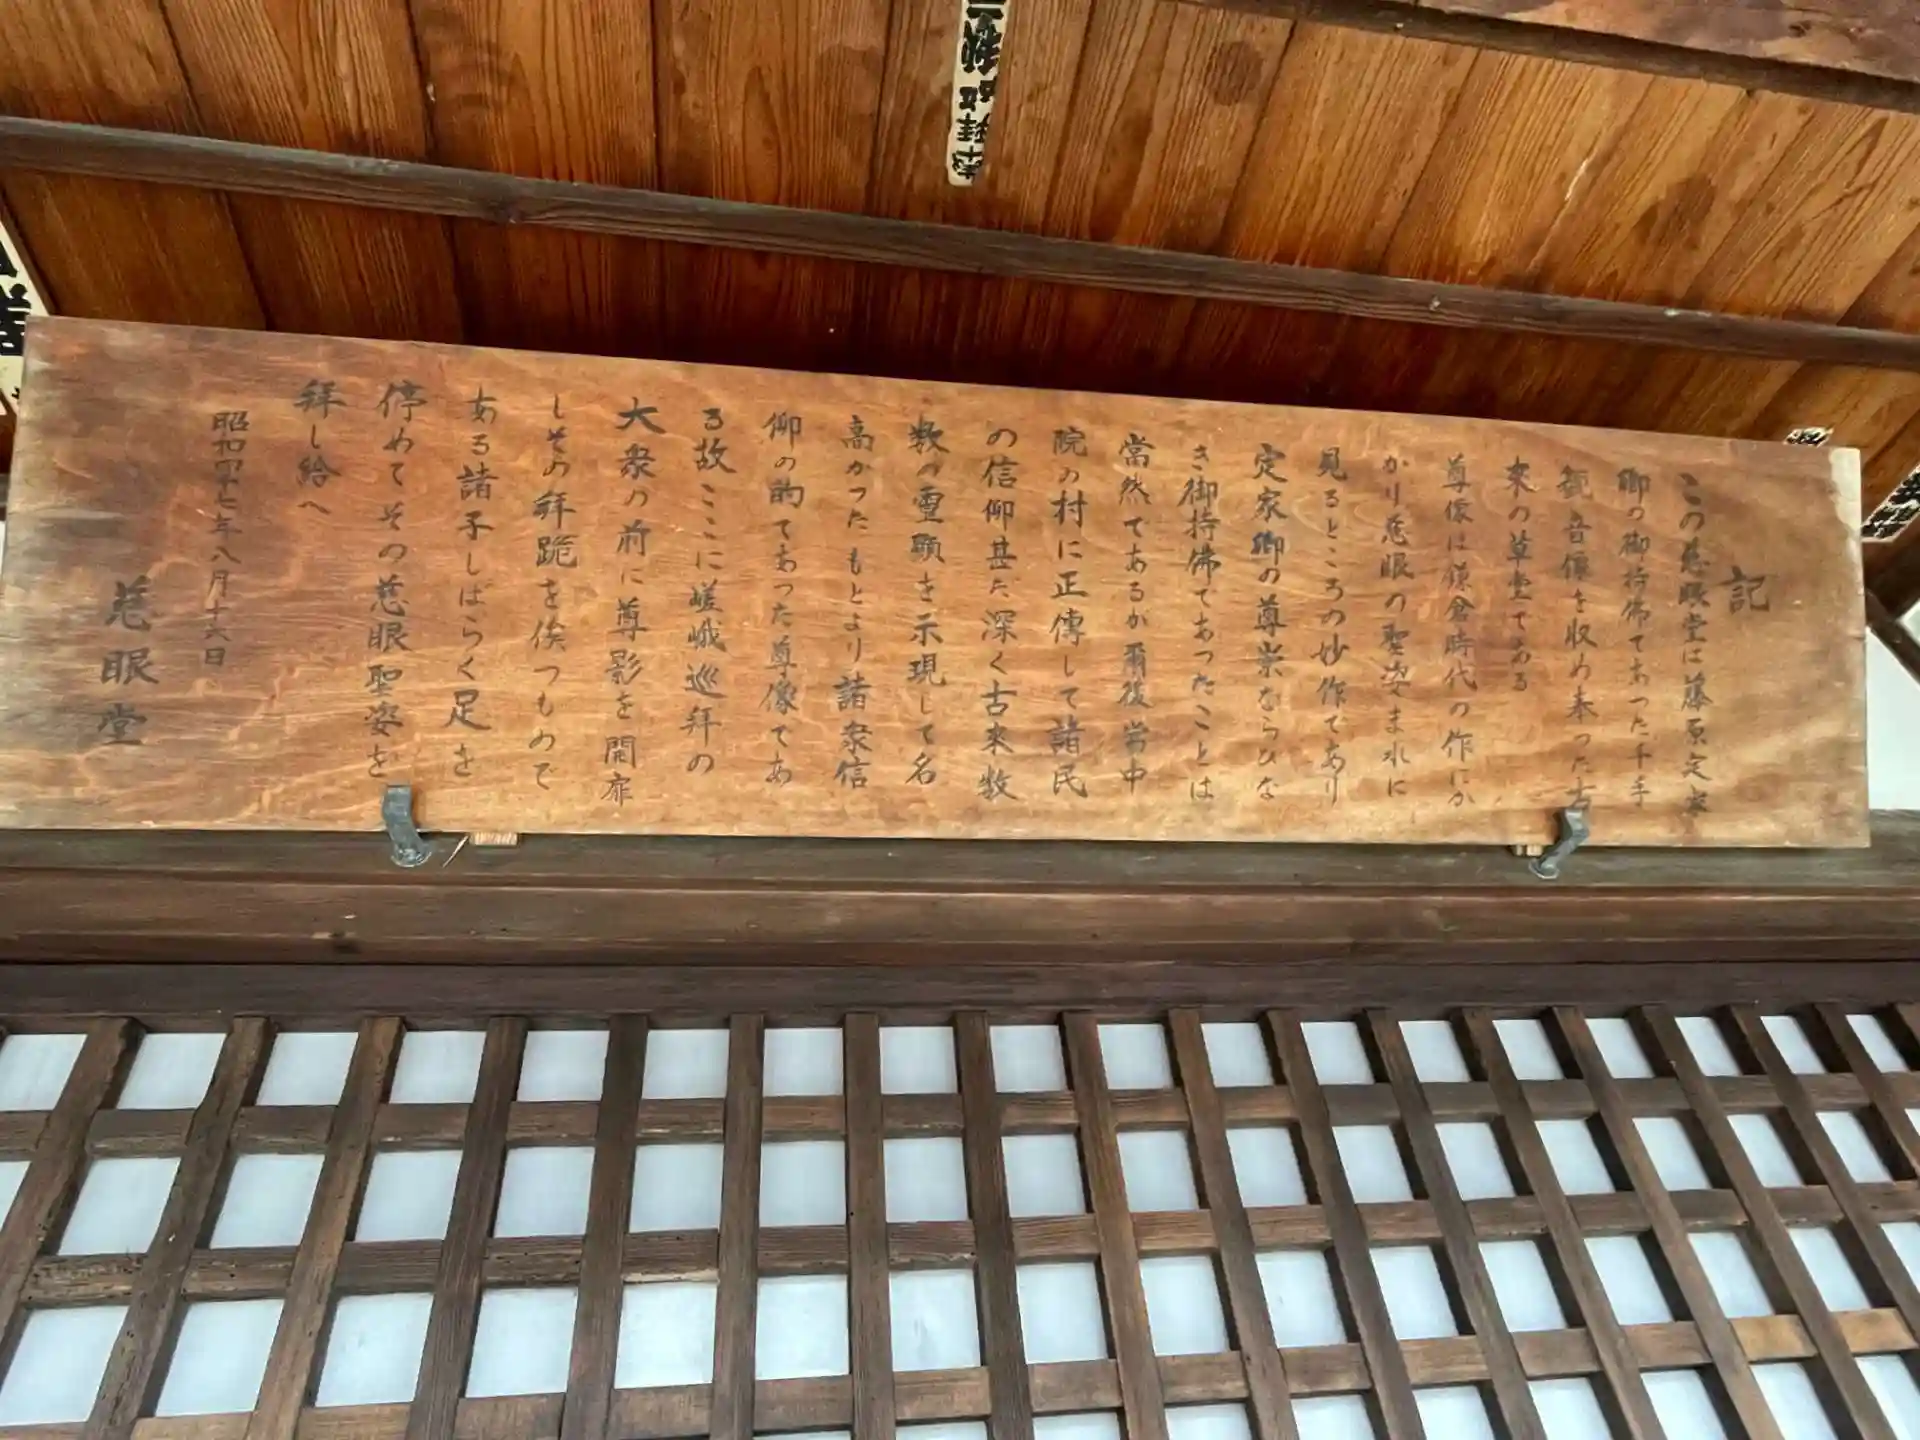 記
この慈眼堂は藤原定家
卿の御持佛であった千手
観音像を収め奉った古
来の草堂である
尊像は鎌倉時代の作にか
かり慈眼の聖姿まれに
見るところの妙作であり
定家卿の尊崇ならひな
き御持佛であったことは
當然であるが爾後當中
院の村に正傳して諸民
の信仰甚だ深く古来数
数の霊顕を示現して名
高かったもとより諸衆信
仰の的であった尊像であ
る故ここに嵯峨巡拝の
大衆の前に尊影を開扉
しその拝跪を俟つもので
ある諸子しばらく足を
停めてその慈眼聖姿を
拝し給へ
昭和四十七年八月十六日
慈眼堂